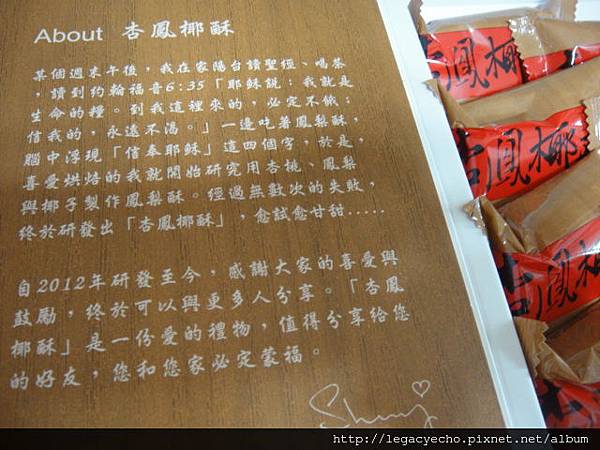 About 杏鳳椰酥
某個週末午後，我在家陽台讀聖經、喝茶
，讀到約翰福音6:35「耶穌說：我就是
生命的糧。到我這裡來的，必定不餓；
信我的，永遠不渴。」一邊吃著鳳梨酥，
腦中浮現「信奉耶穌」這四個字，於是，
喜愛烘焙的我就開始研究用杏桃、鳳梨
與椰子製作鳳梨酥。經過無數次的失敗，
終於研發出「杏鳳椰酥」，愈試愈甘甜.....
自2012年研發至今，感謝大家的喜愛與
鼓勵，終於可以與更多人分享。「杏鳳
椰酥」是一份愛的禮物，值得分享給您
的好友，您和您家必定蒙福。
杏鳳椰
杏鳳椰
杏鳳椰
http://legacyecho.pixnet.net/album